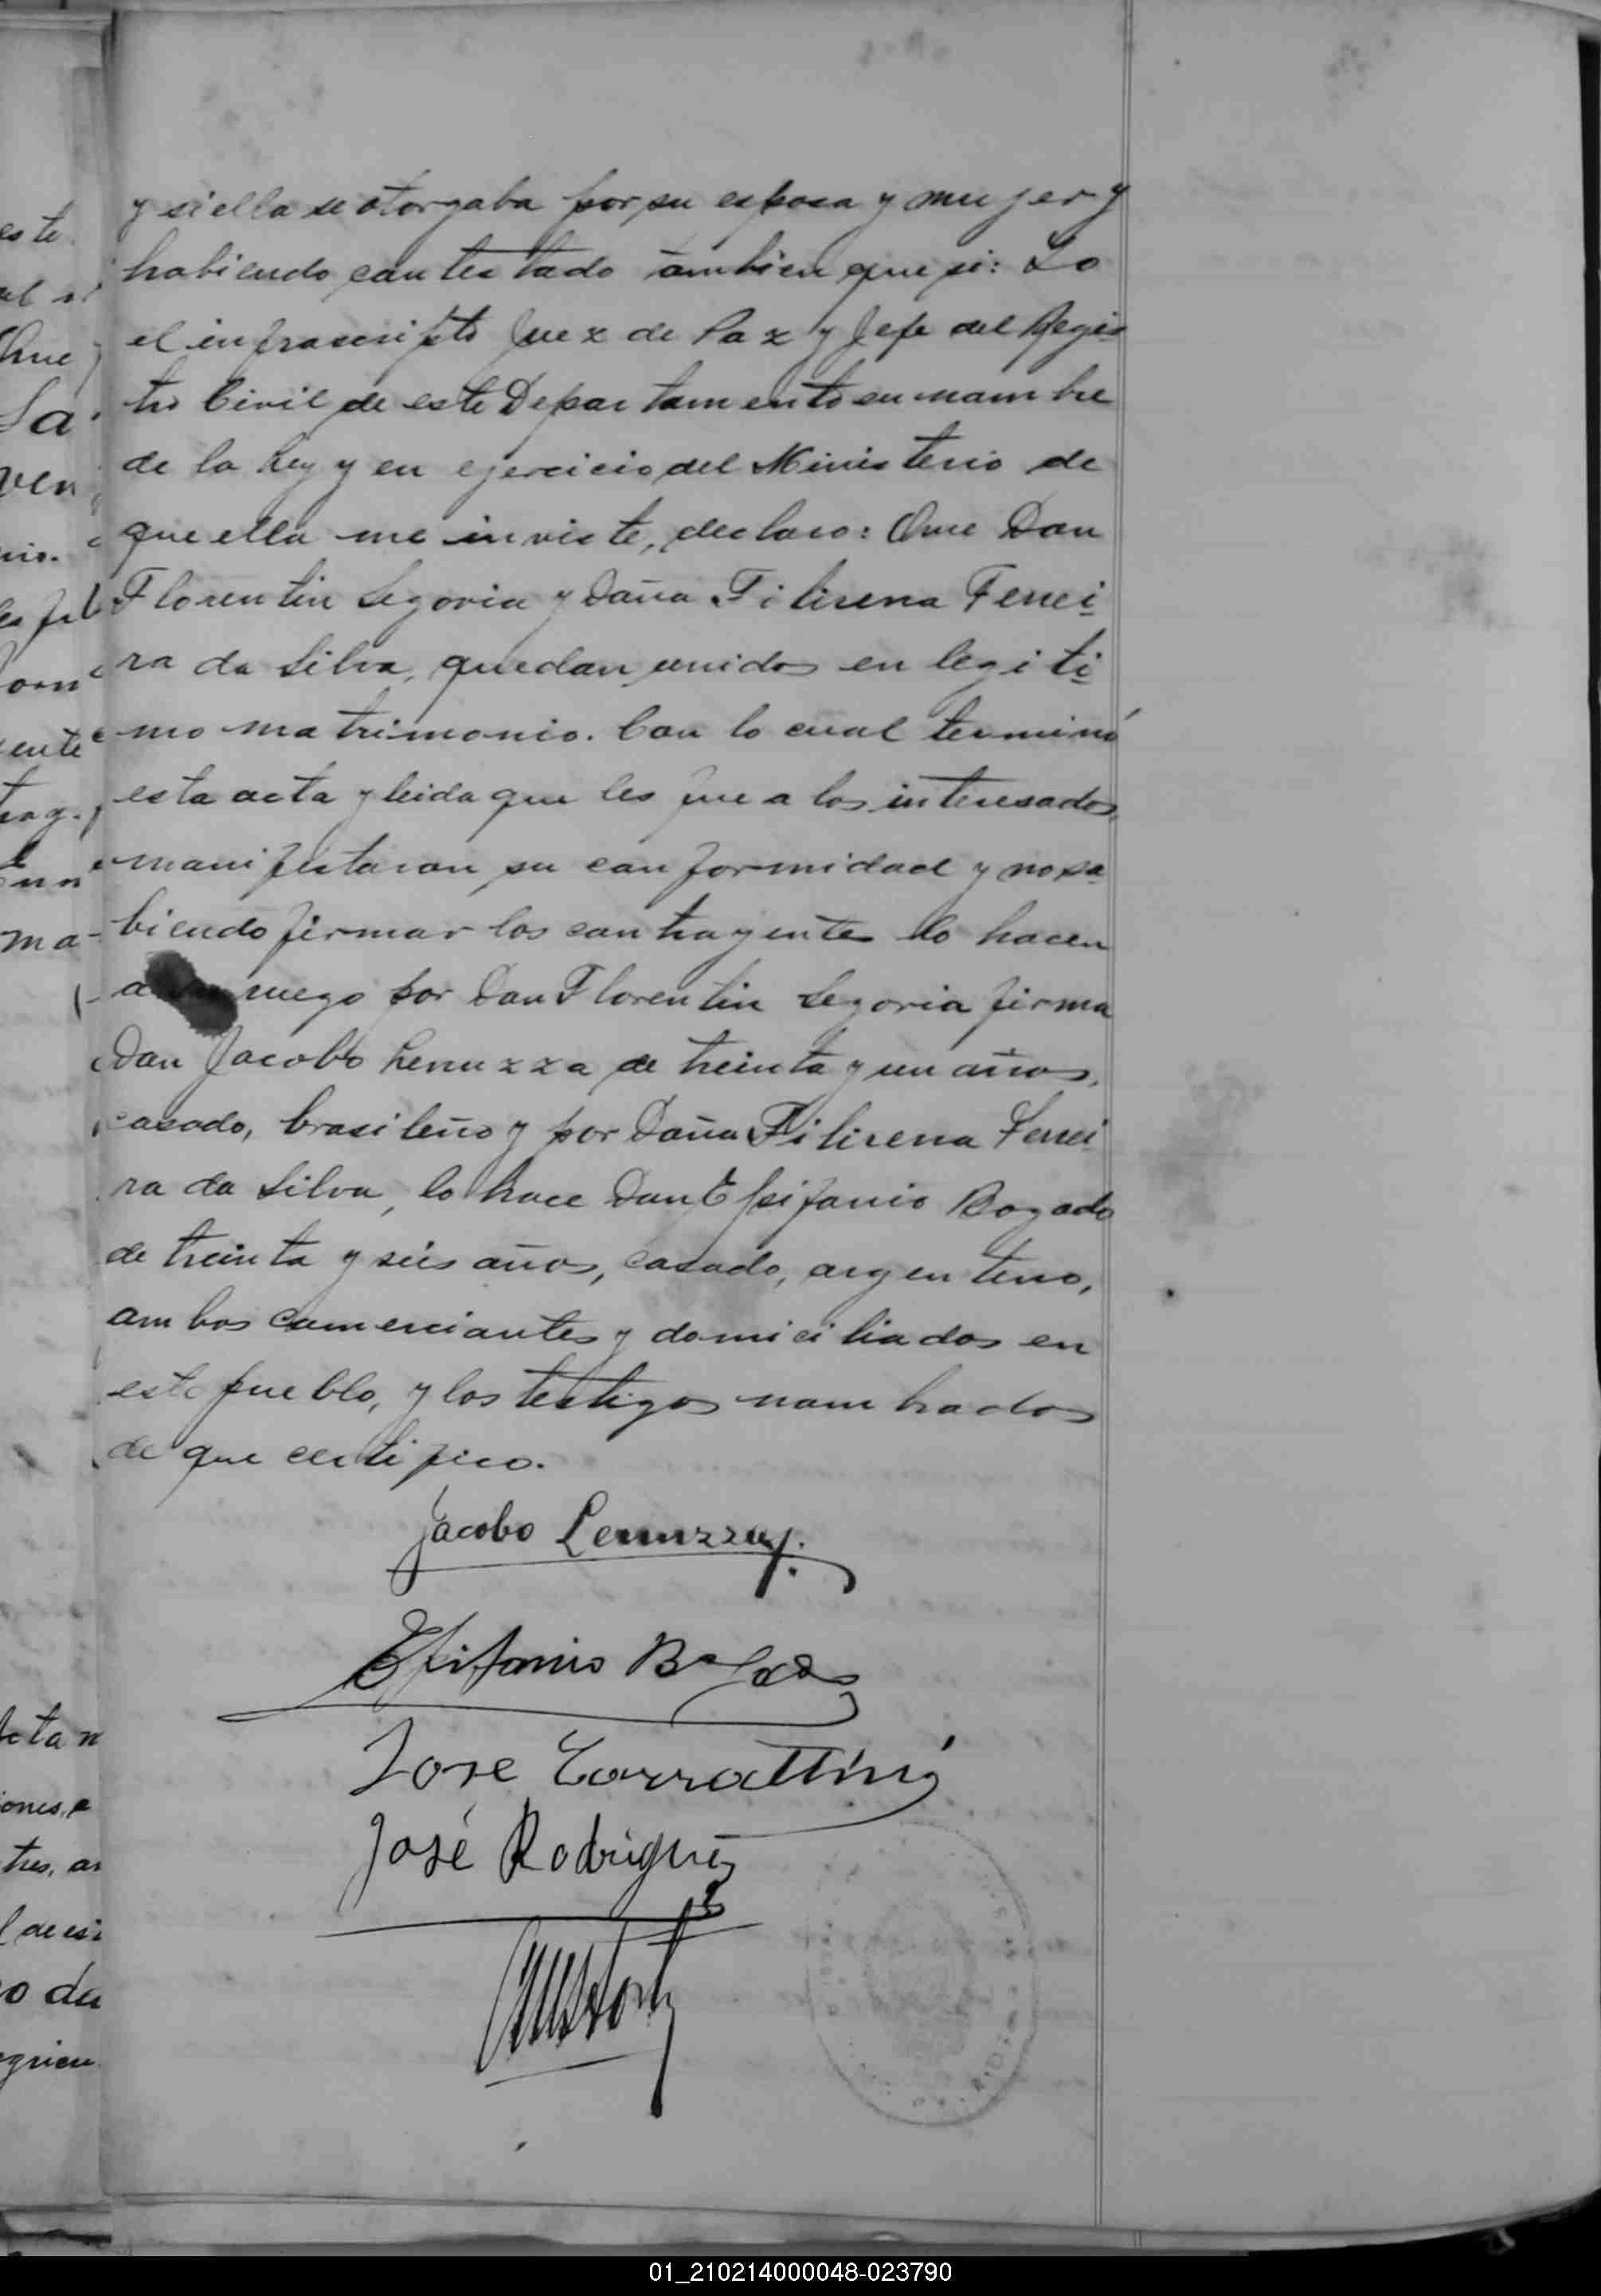 y si ella se otorgaba por su esposa y mujer y
habiendo contestado tambien que si: Yo
el infrascripto Juez de Paz y Jefe del Regis
tro Civil de este Departamento en nombre
de la Ley y en ejercicio del Ministerio de
que ella me inviste, declaro: Que Don
Florentin Segovia y Doña Filisena Ferrei
ra da Silva, quedan unidos en legiti
mo matrimonio. Con lo cual terminó
esta acta y leida que les fue a los interesados,
manifestaron su conformidad y no sa
biendo firmar los contrayentes lo hacen
a ruego por Don Florentin Segovia firma
Don Jacobo Lenuzza de treinta y un años,
casado, brasileño y por Doña Filisena Ferrei
ra da Silva, lo hace Don Epifanio Bogado
de treinta y seis años, casado, argentino,
ambos comerciantes y domiciliados en
este pueblo, y los testigos nombrados
de que certifico.
Jacobo Lenuzza
Epifanio Bogado
Jose
José Rodriguez
01_210214000048-023790